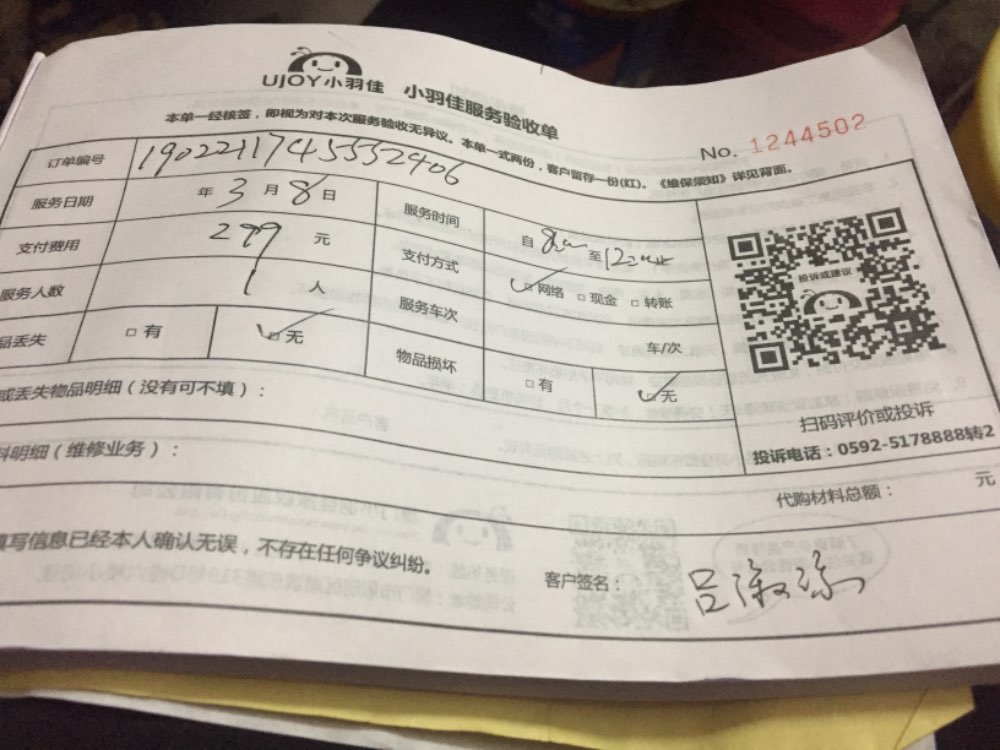 UJOY小羽佳 小羽佳服务验收单
本单一经核签，即视为对本次服务验收无异议。本单一式两份，客户留存一份(红)。《维保须知》详见背面。
No. 1244502
订单编号
服务日期 年 3 月 8 日 服务时间 自 至
支付费用 299 元 支付方式 网络 现金 转账
服务人数 1 人 服务车次 车/次
品丢失 有 无 物品损坏 有 无
投诉或建议
扫码评价或投诉
投诉电话：0592-5178888转2
或丢失物品明细（没有可不填）：
料明细（维修业务）：
代购材料总额： 元
填写信息已经本人确认无误，不存在任何争议纠纷。
客户签名： 吕